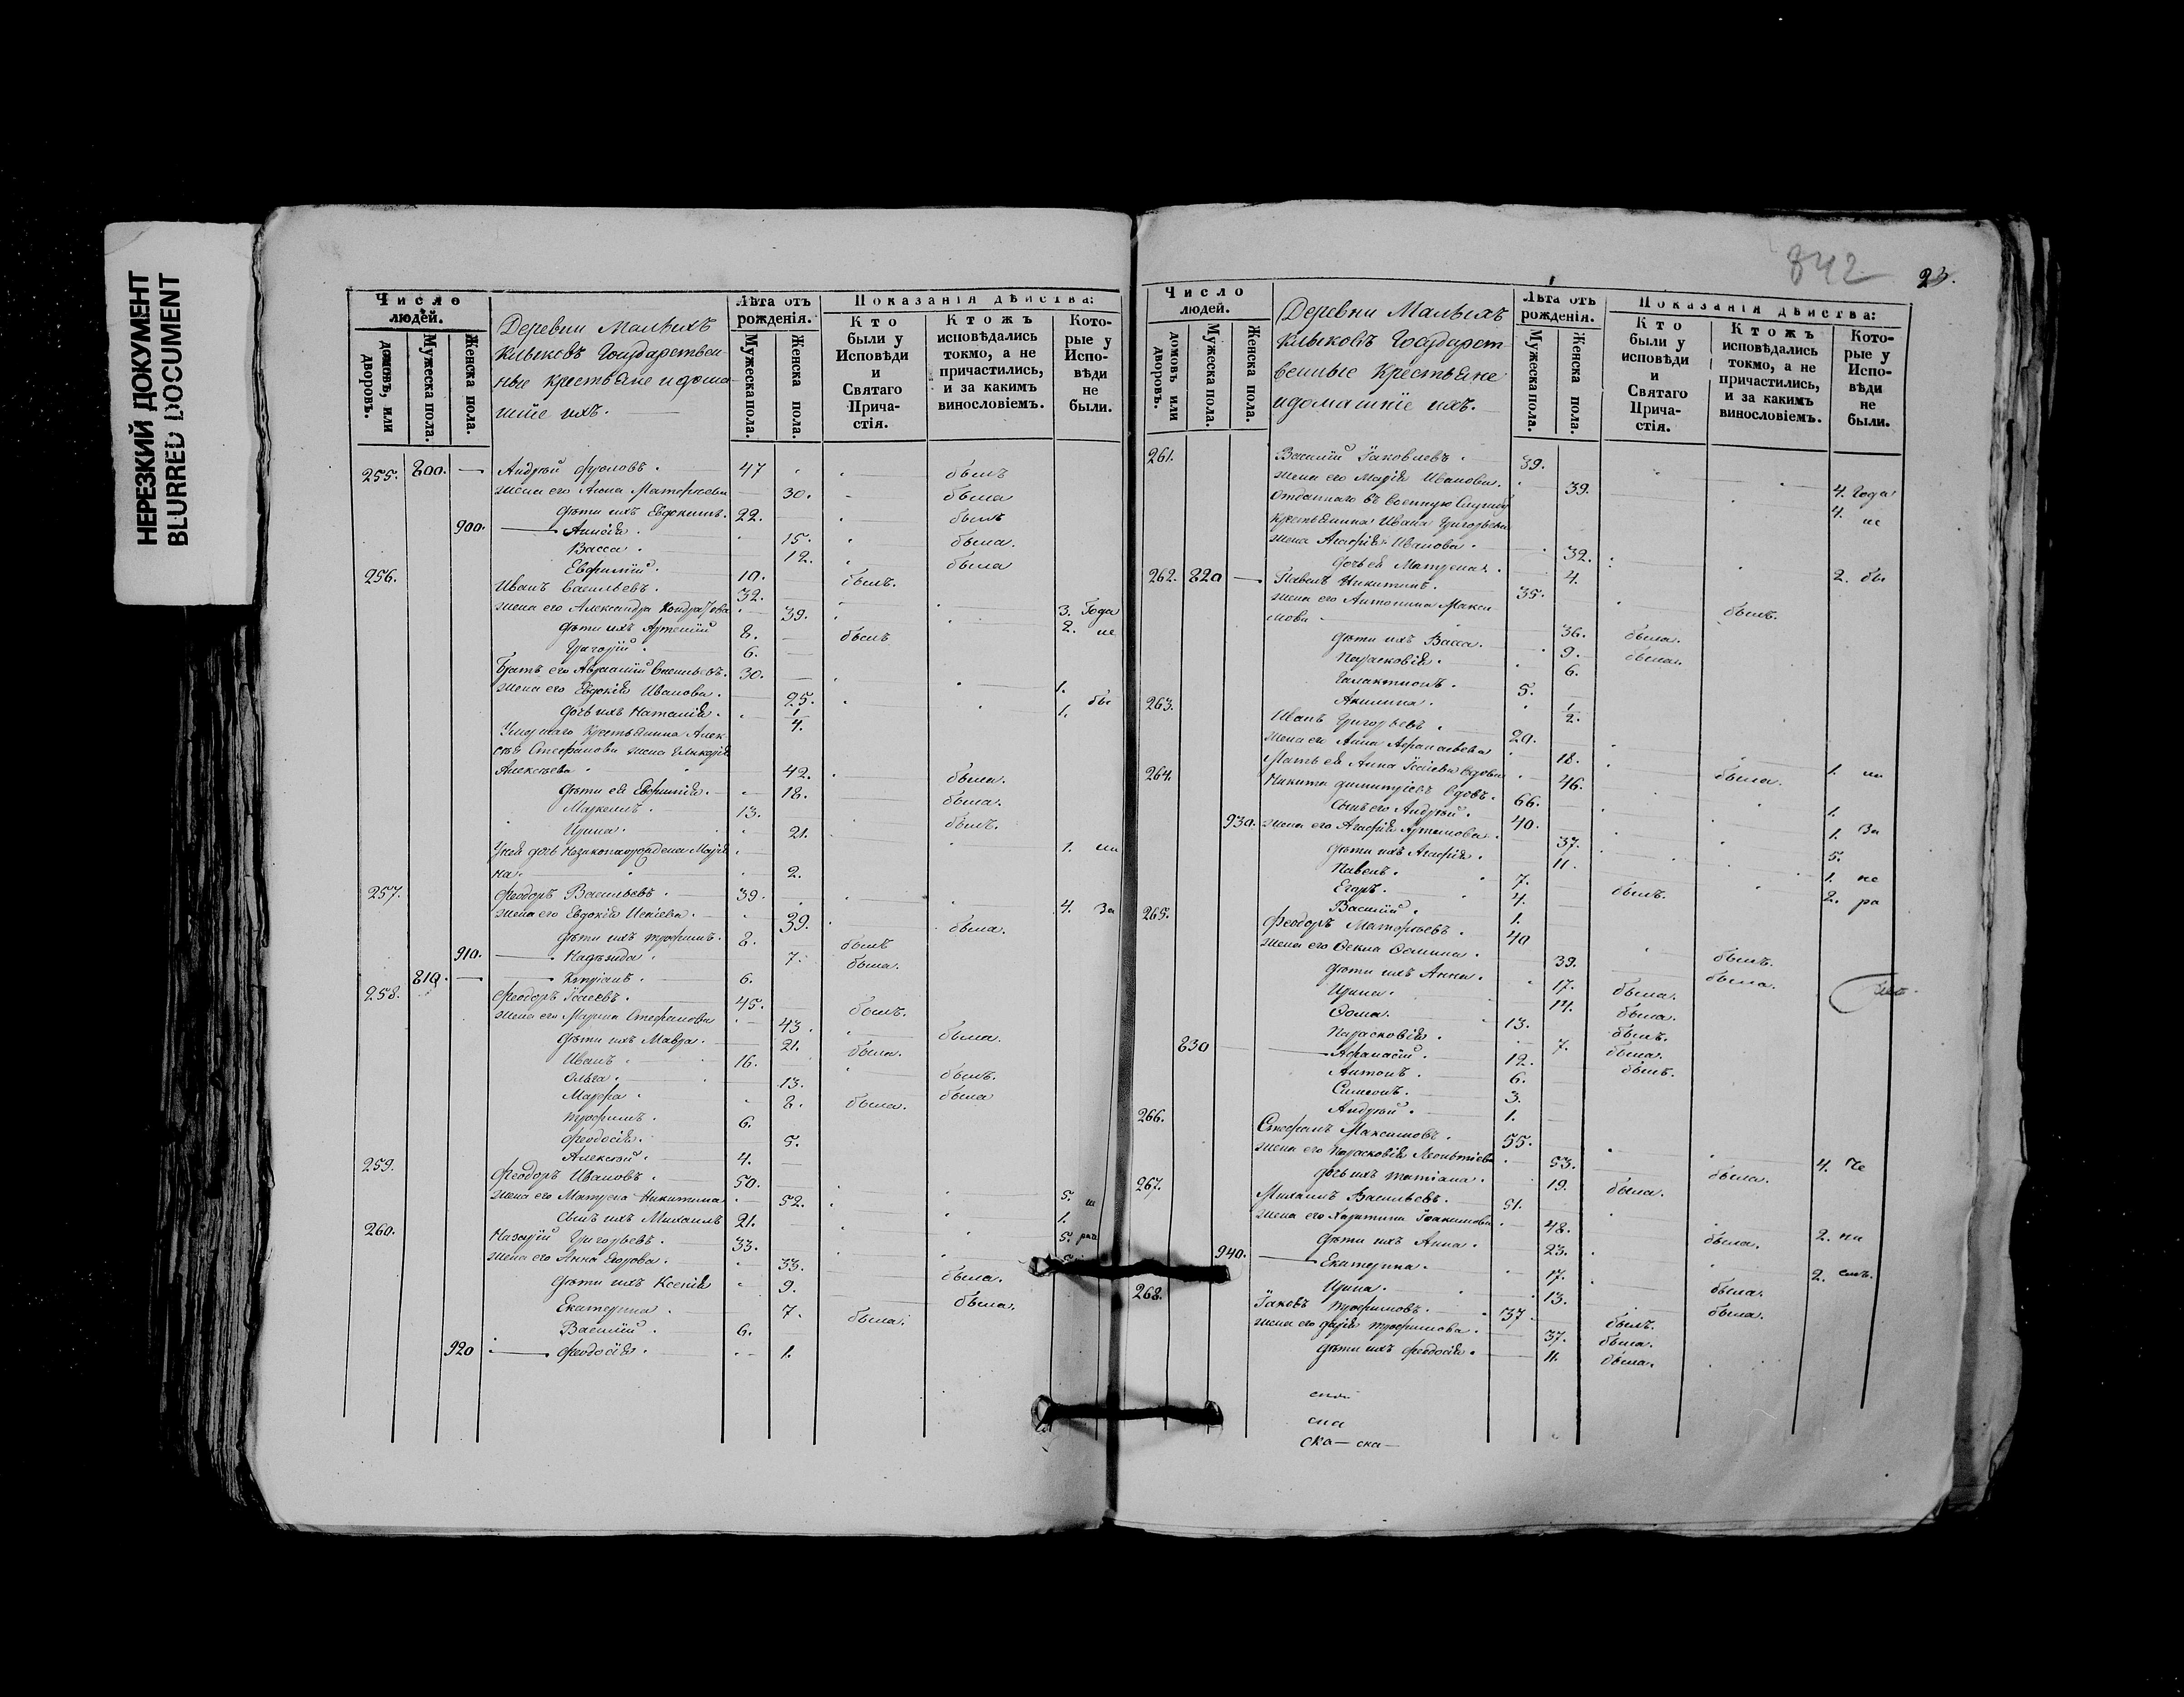 НЕРЕЗКИЙ ДОКУМЕНТ
BLURRED DOCUMENT
Число людей.
домовъ, или дворовъ.
Мужеска пола.
Женска пола.
Деревни Малыхъ
Клыковъ Государствен-
ные крестьяне и дома-
шніе ихъ.
Лѣта отъ рожденія.
Мужеска пола.
Женска пола.
Показанія дѣйства:
Кто были у Исповѣди и Святаго Прича-стія.
Ктожъ исповѣдались токмо, а не причастились, и за какимъ винословіемъ.
Кото-рые у Испо-вѣди не были.
255. 800. — Андрей Фроловъ. 47 былъ
жена его Анна Матфеева 30. была
дѣти ихъ Евдокимъ. 22. былъ
900. Анисія. 15. была.
Васса. 12. была
Евфимій. 10. былъ.
256. Иванъ Васильевъ. 32.
жена его Александра Кондратова 39. 3. Года
дѣти ихъ Артемій 8. былъ 2. не
Григорій. 6.
Братъ его Авраамій Васильевъ. 30.
жена его Евдокія Иванова. 25. 1. бы
дочь ихъ Наталія. 1/4. 1.
Умершаго крестьянина Алек-
сѣя Стефанова жена Гликерія
Алексѣева 42. была.
дѣти ея Евфимія. 18. была.
Маркеллъ. 13. былъ.
Ирина. 21.
У ней дочь незаконнорожденна Марія- 1. ли
на. 2.
257. Феодоръ Васильевъ. 39. 4. За
жена его Евдокія Исаіева. 39. была.
дѣти ихъ Трофимъ. 8. былъ
910. Надежда. 7. была.
810. — Купріанъ. 6.
258. Феодоръ Ісаіевъ. 45. былъ.
жена его Марина Стефанова 43. была.
дѣти ихъ Мавра. 21. была.
Иванъ. 16. былъ.
Ольга. 13. была
Марфа. 8. была.
Трофимъ. 6.
Феодосія. 5.
Алексѣй. 4.
259. Феодоръ Ивановъ. 50.
жена его Матрена Никитина 52. 5.
Сынъ ихъ Михаилъ 21. 1.
260. Назарій Григорьевъ. 33. 5.
жена его Анна Егорова. 33.
дѣти ихъ Ксенія 9. была.
Екатерина. 7. была. была.
Василій. 6.
920 Феодосія. 1.
842
23.
Число людей.
домовъ или дворовъ.
Мужеска пола.
Женска пола.
Деревни Малыхъ
Клыковъ Государст-
венные Крестьяне
и домашніе ихъ.
Лѣта отъ рожденія.
Мужеска пола.
Женска пола.
Показанія дѣйства:
Кто были у исповѣди и Святаго Прича-стія.
Ктожъ исповѣдались токмо, а не причастились, и за какимъ винословіемъ.
Кото-рые у Испо-вѣди не были.
261. Василій Іаковлевъ. 39.
жена его Марія Иванова. 39. 4. Года
Отданнаго въ военную службу 4. не
крестьянина Ивана Григорьева
жена Агафія Иванова. 32.
дочь ея Матрена. 4. 2. бы
262. 820 — Павелъ Никитинъ. 35. былъ.
жена его Антонина Макси-
мова 36. была.
дѣти ихъ Васса. 9. была.
Парасковія. 6.
Галактіонъ. 5.
Акилина. 1/2.
263. Иванъ Григорьевъ. 20.
жена его Анна Афанасьева 18. 1. ли
Мать ея Анна Ісаіева вдова 46. была.
264. Никита Димитріевъ вдовъ. 66. 1.
Сынъ его Андрей. 40. 1. За
930. жена его Агафія Артамонова. 37. 5.
дѣти ихъ Агафія. 11. 1. не
Павелъ. 7. былъ. 2. ра
Егоръ. 4.
Василій. 1.
265. Феодоръ Матфеевъ. 40 былъ.
жена его Ѳекла Ѳомина. 39. была.
дѣти ихъ Анна. 17. была.
Ирина. 14. была.
Ѳома. 13. былъ.
Парасковія. 7. была.
830 Афанасій. 12. былъ.
Антонъ. 6.
Симеонъ. 3.
Андрей. 1.
266. Стефанъ Максимовъ. 55.
жена его Парасковія Леонтіева 53. была. 4. Че
дочь ихъ Татіана. 19. была.
267. Михаилъ Васильевъ. 51.
жена его Харитина Іоакимова 48. была. 2. ни
дѣти ихъ Анна. 23.
940. Екатерина. 17. была. 2. емъ.
Ирина. 13. была.
268. Іаковъ Трофимовъ. 37. былъ.
жена его Дарія Трофимова. 37. была.
дѣти ихъ Феодосія. 11. была.
ска
ска— ска—